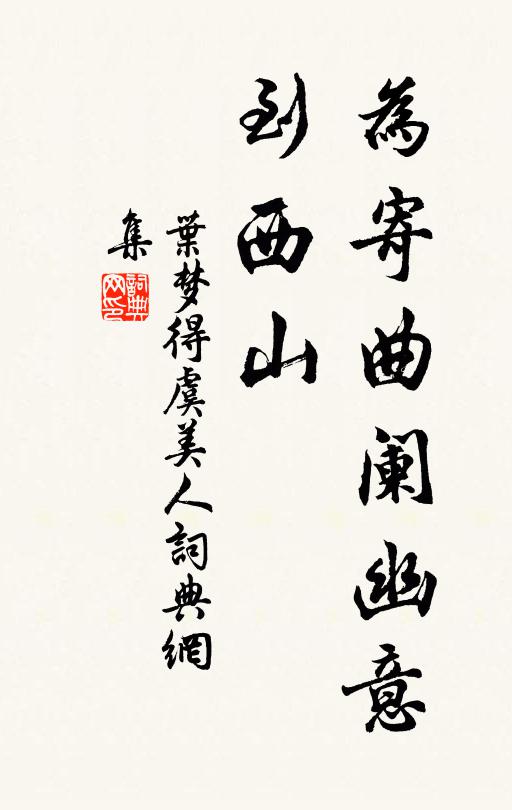 為寄曲阑幽意
到西山
葉梦得虞美人詞典網
集
詞典
网印